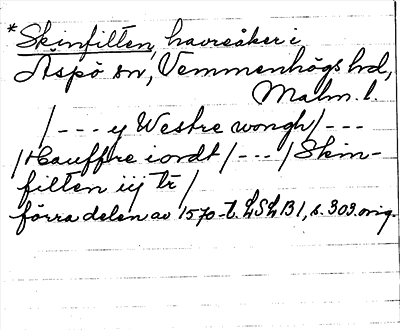 *Skinfilten, havreåker i
Äspö sn, Vemmenhögs hd,
Malm. l.
/--- y Westre wongh/---
/Hauffre iordt/---/Skin-
filten iij tr/
förra delen av 1570-t. LSLB1, s. 303. orig.